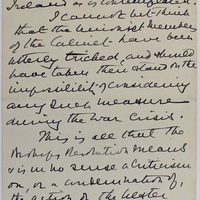 Ireland as is contemplated.
I cannot but think
that the Unionist members
of the Cabinet have been
utterly tricked and should
have taken their stand on the
impossibility of considering
any such measure
during the War Crisis.
This is all that the
Resolution means
& is in no sense a criticism
on, or a condemnation of,
the action of the Ulster